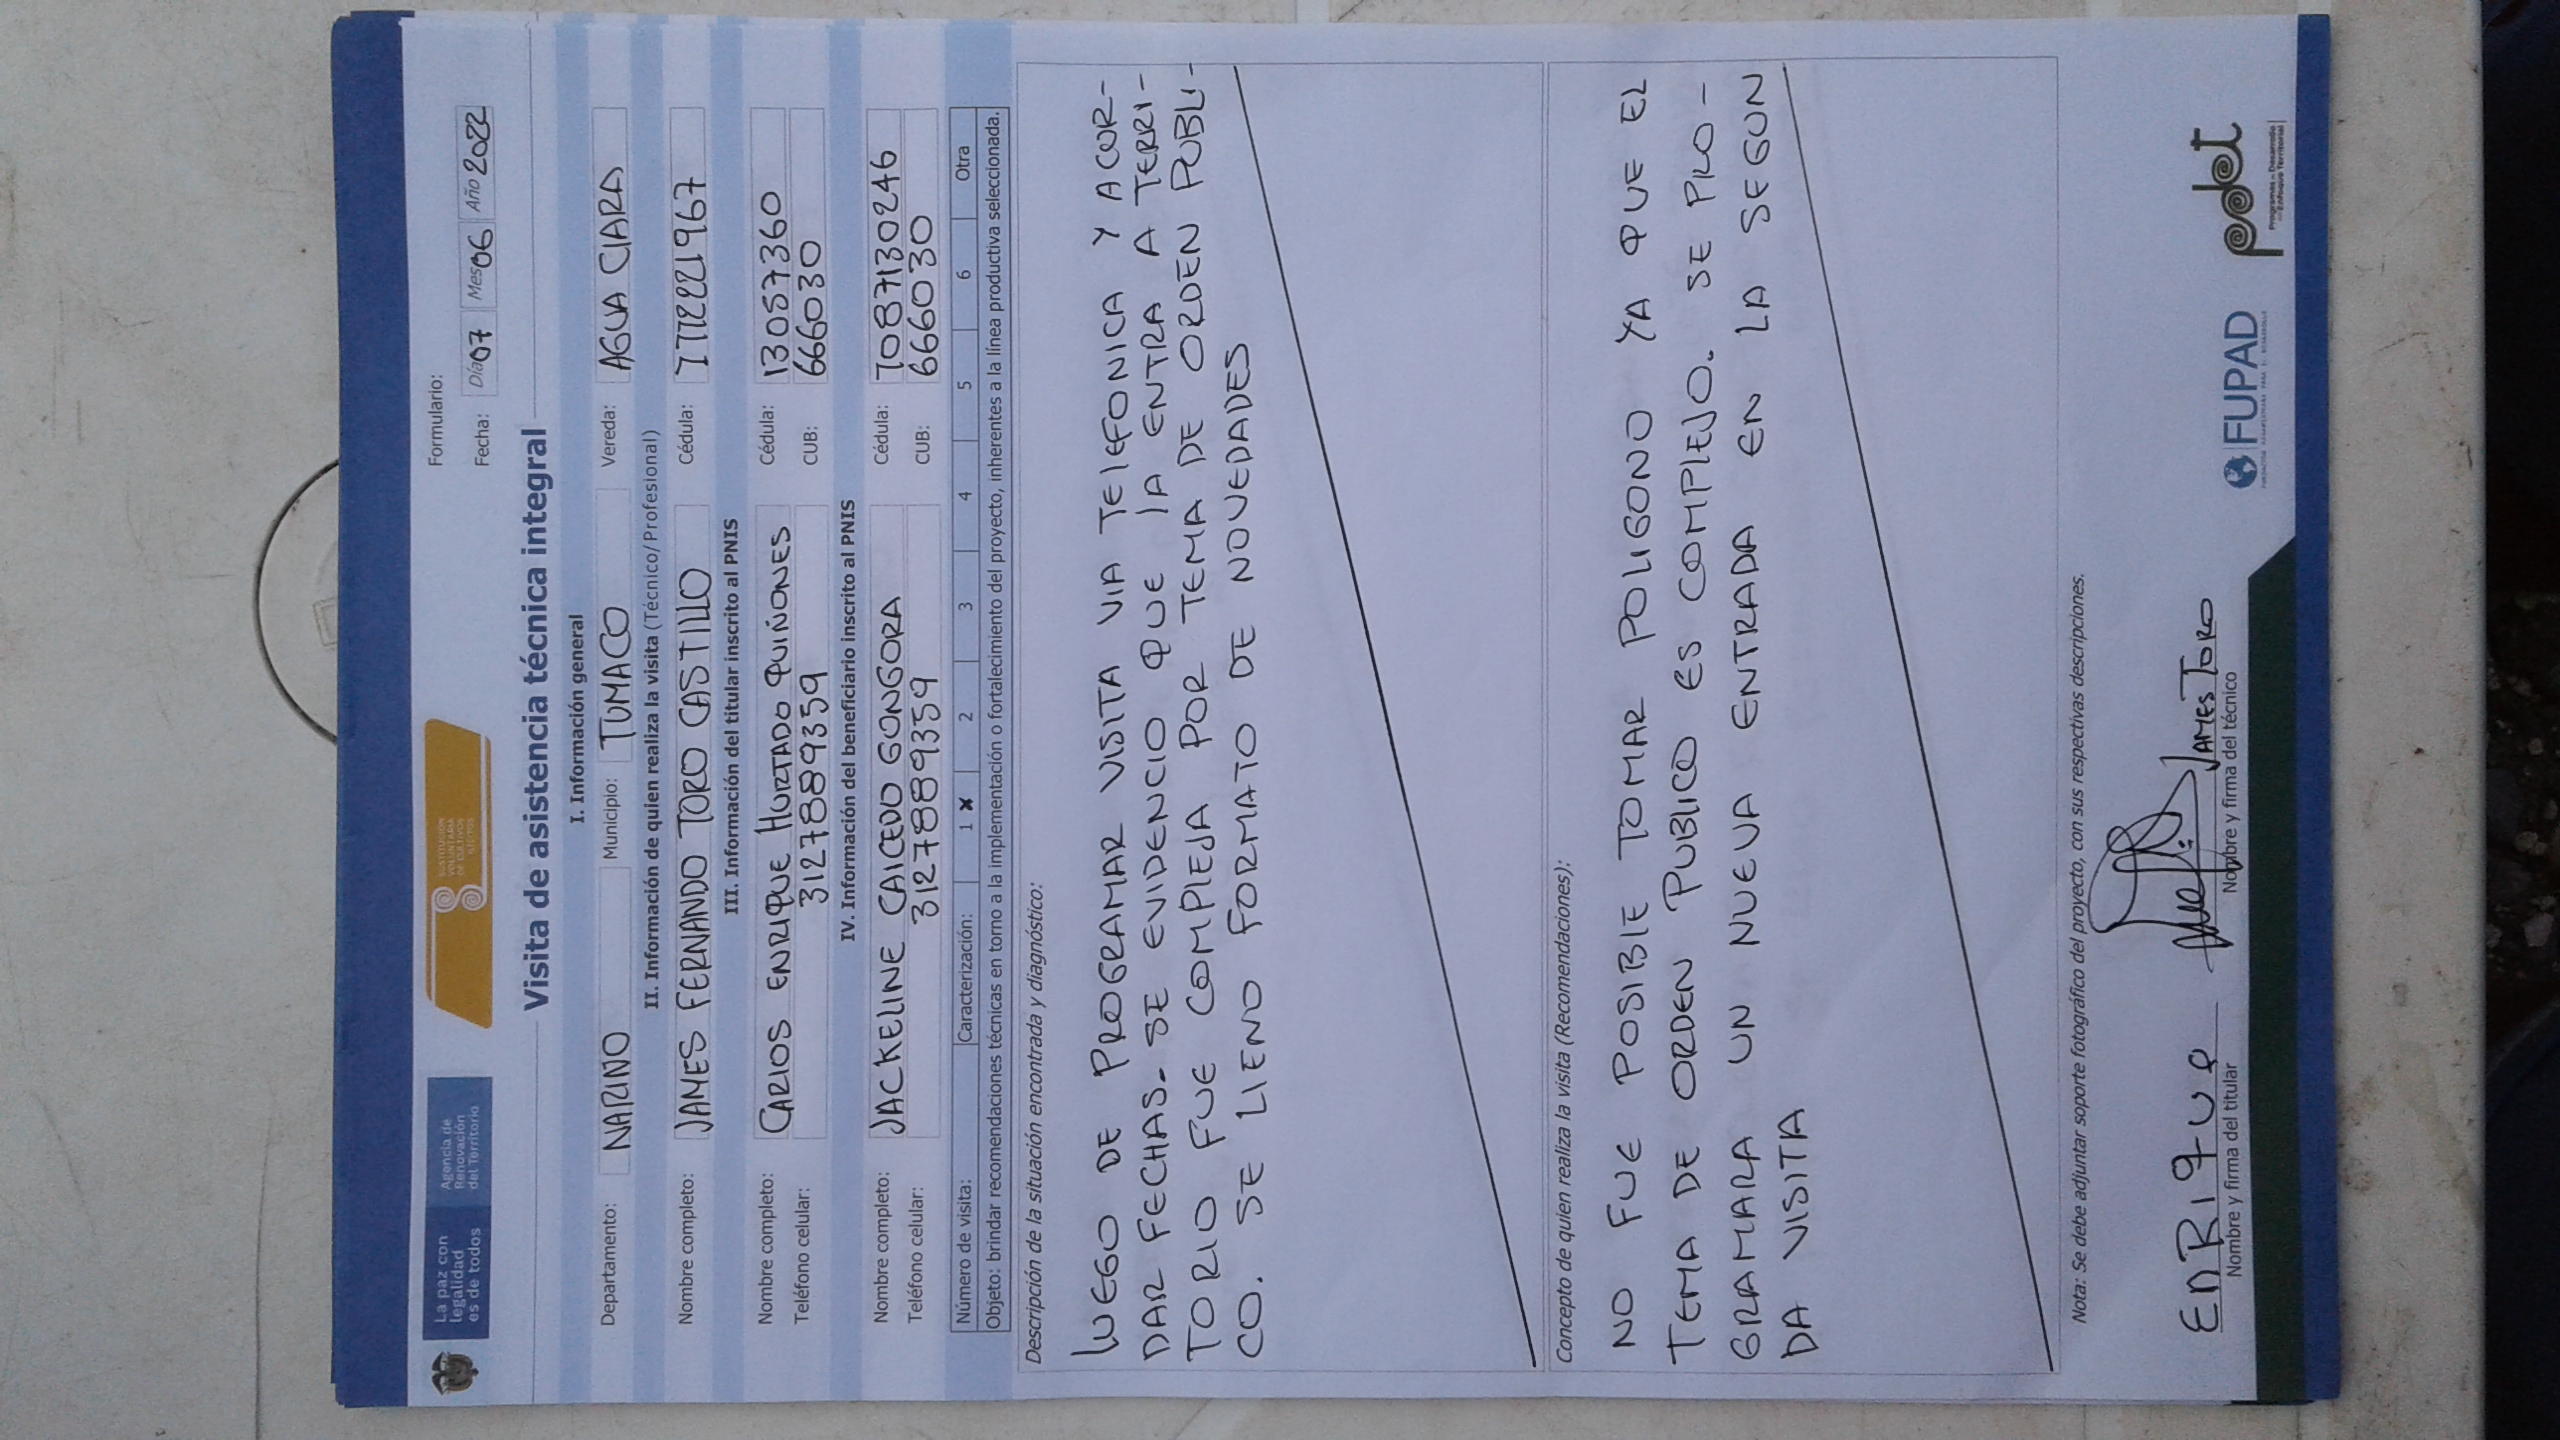 La paz con
legalidad
es de todos
Agencia de
Renovación
del Territorio
SUSTITUCIÓN
VOLUNTARIA
DE CULTIVOS
ILÍCITOS
Formulario:
Fecha: Día 07 Mes 06 Año 2022
Visita de asistencia técnica integral
I. Información general
Departamento: NARINO Municipio: TUMACO Vereda: AGUA CLARA
II. Información de quien realiza la visita (Técnico/ Profesional)
Nombre completo: JAMES FERNANDO TORO CASTILLO Cédula: 1112221967
III. Información del titular inscrito al PNIS
Nombre completo: CARLOS ENRIQUE HURTADO QUIÑONES Cédula: 13057360
Teléfono celular: 3127889359 CUB: 666030
IV. Información del beneficiario inscrito al PNIS
Nombre completo: JACKELINE CAICEDO GONGORA Cédula: 1087130246
Teléfono celular: 3127889359 CUB: 666030
Número de visita: Caracterización: 1 X 2 3 4 5 6 Otra
Objeto: brindar recomendaciones técnicas en torno a la implementación o fortalecimiento del proyecto, inherentes a la línea productiva seleccionada.
Descripción de la situación encontrada y diagnóstico:
LUEGO DE PROGRAMAR VISITA VIA TELEFONICA Y ACOR-
DAR FECHAS. SE EVIDENCIO QUE LA ENTRA A TERRI-
TORIO FUE COMPLEJA POR TEMA DE ORDEN PUBLI-
CO. SE LLENO FORMATO DE NOVEDADES
Concepto de quien realiza la visita (Recomendaciones):
NO FUE POSIBLE TOMAR POLIGONO YA QUE EL
TEMA DE ORDEN PUBLICO ES COMPLEJO. SE PRO-
GRAMARA UN NUEVA ENTRADA EN LA SEGUN
DA VISITA
Nota: Se debe adjuntar soporte fotográfico del proyecto, con sus respectivas descripciones.
ENRIQUE
Nombre y firma del titular
JAMES TORO
Nombre y firma del técnico
FUPAD
pdet
Programas de Desarrollo
con Enfoque Territorial